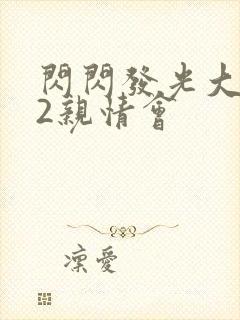 閃閃發光大
2親情會
凜愛